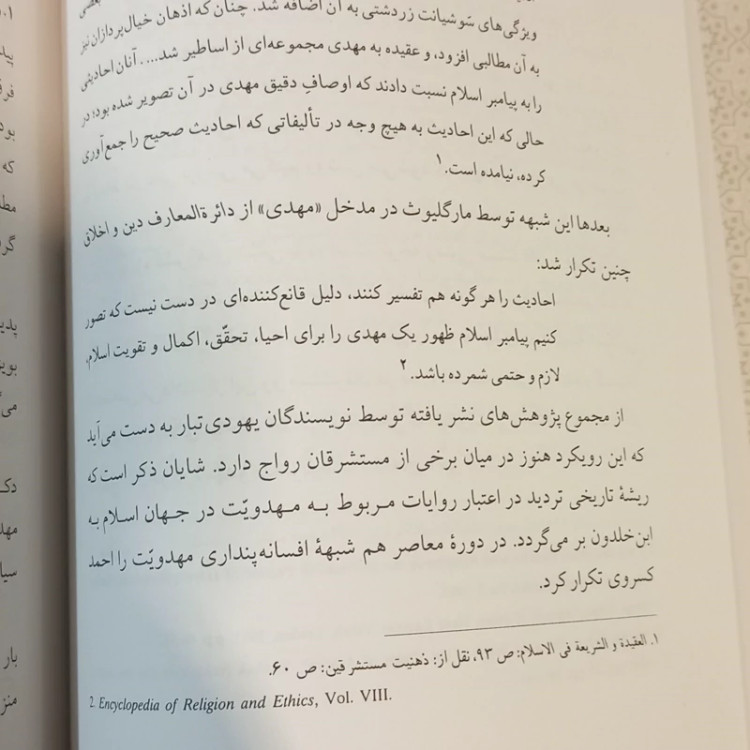 بعضی
ویژگی‌های سَوشیانت زردشتی به آن اضافه شد. چنان که اذهان خیال‌پردازان نیز
به آن مطالبی افزود، و عقیده به مهدی مجموعه‌ای از اساطیر شد.... آنان احادیثی
را به پیامبر اسلام نسبت دادند که اوصافِ دقیق مهدی در آن تصویر شده بود؛ در
حالی که این احادیث به هیچ وجه در تألیفاتی که احادیث صحیح را جمع‌آوری
کرده، نیامده است.۱
بعدها این شبهه توسط مارگلیوث در مدخل «مهدی» از دائرةالمعارف دین و اخلاق
چنین تکرار شد:
احادیث را هر گونه هم تفسیر کنند، دلیل قانع‌کننده‌ای در دست نیست که تصور
کنیم پیامبر اسلام ظهور یک مهدی را برای احیا، تحقّق، اکمال و تقویت اسلام،
لازم و حتمی شمرده باشد.۲
از مجموع پژوهش‌های نشر یافته توسط نویسندگان یهودی‌تبار به دست می‌آید
که این رویکرد هنوز در میان برخی از مستشرقان رواج دارد. شایان ذکر است که
ریشهٔ تاریخی تردید در اعتبار روایات مربوط به مهدویّت در جهان اسلام به
ابن‌خلدون بر می‌گردد. در دورهٔ معاصر هم شبههٔ افسانه‌پنداری مهدویّت را احمد
کسروی تکرار کرد.
۱. العقیدة و الشریعة فی الاسلام: ص ۹۳، نقل از: ذهنیت مستشرقین: ص ۶۰.
2. Encyclopedia of Religion and Ethics, Vol. VIII.